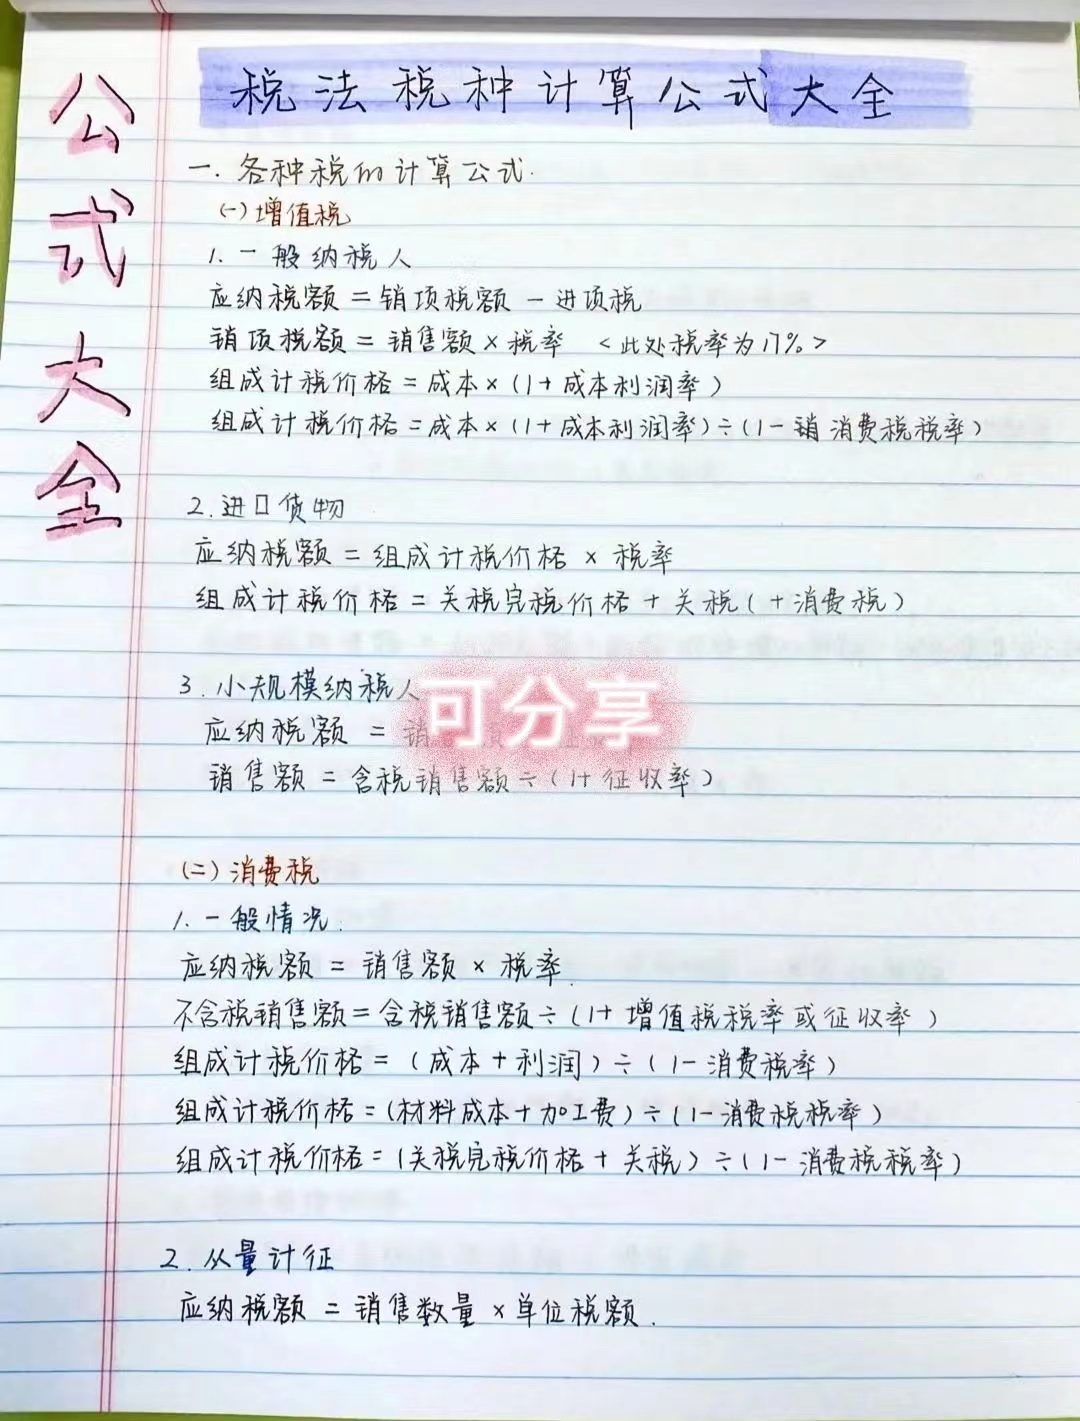 公式大全
税法税种计算公式大全
一.各种税的计算公式.
(一)增值税
1.一般纳税人
应纳税额=销项税额-进项税
销项税额=销售额×税率 <此处税率为17%>
组成计税价格=成本×(1+成本利润率)
组成计税价格=成本×(1+成本利润率)÷(1-销消费税税率)
2.进口货物
应纳税额=组成计税价格×税率
组成计税价格=关税完税价格+关税(+消费税)
3.小规模纳税人
应纳税额=销
可分享
销售额=含税销售额÷(1+征收率)
(二)消费税
1.一般情况.
应纳税额=销售额×税率.
不含税销售额=含税销售额÷(1+增值税税率或征收率)
组成计税价格=(成本+利润)÷(1-消费税率)
组成计税价格=(材料成本+加工费)÷(1-消费税税率)
组成计税价格=(关税完税价格+关税)÷(1-消费税税率)
2.从量计征
应纳税额=销售数量×单位税额.